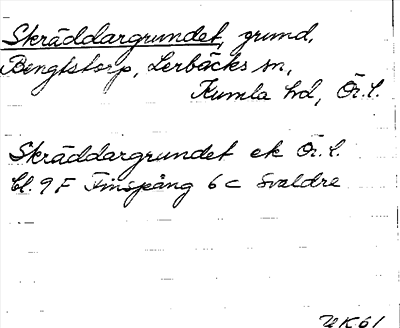 Skräddargrundet, grund,
Bengtstorp, Lerbäcks sn,
Kumla hd, Ör.l.
Skräddargrundet ek Ör.l.
Bl. 9 F Finspång 6 c Svaldre